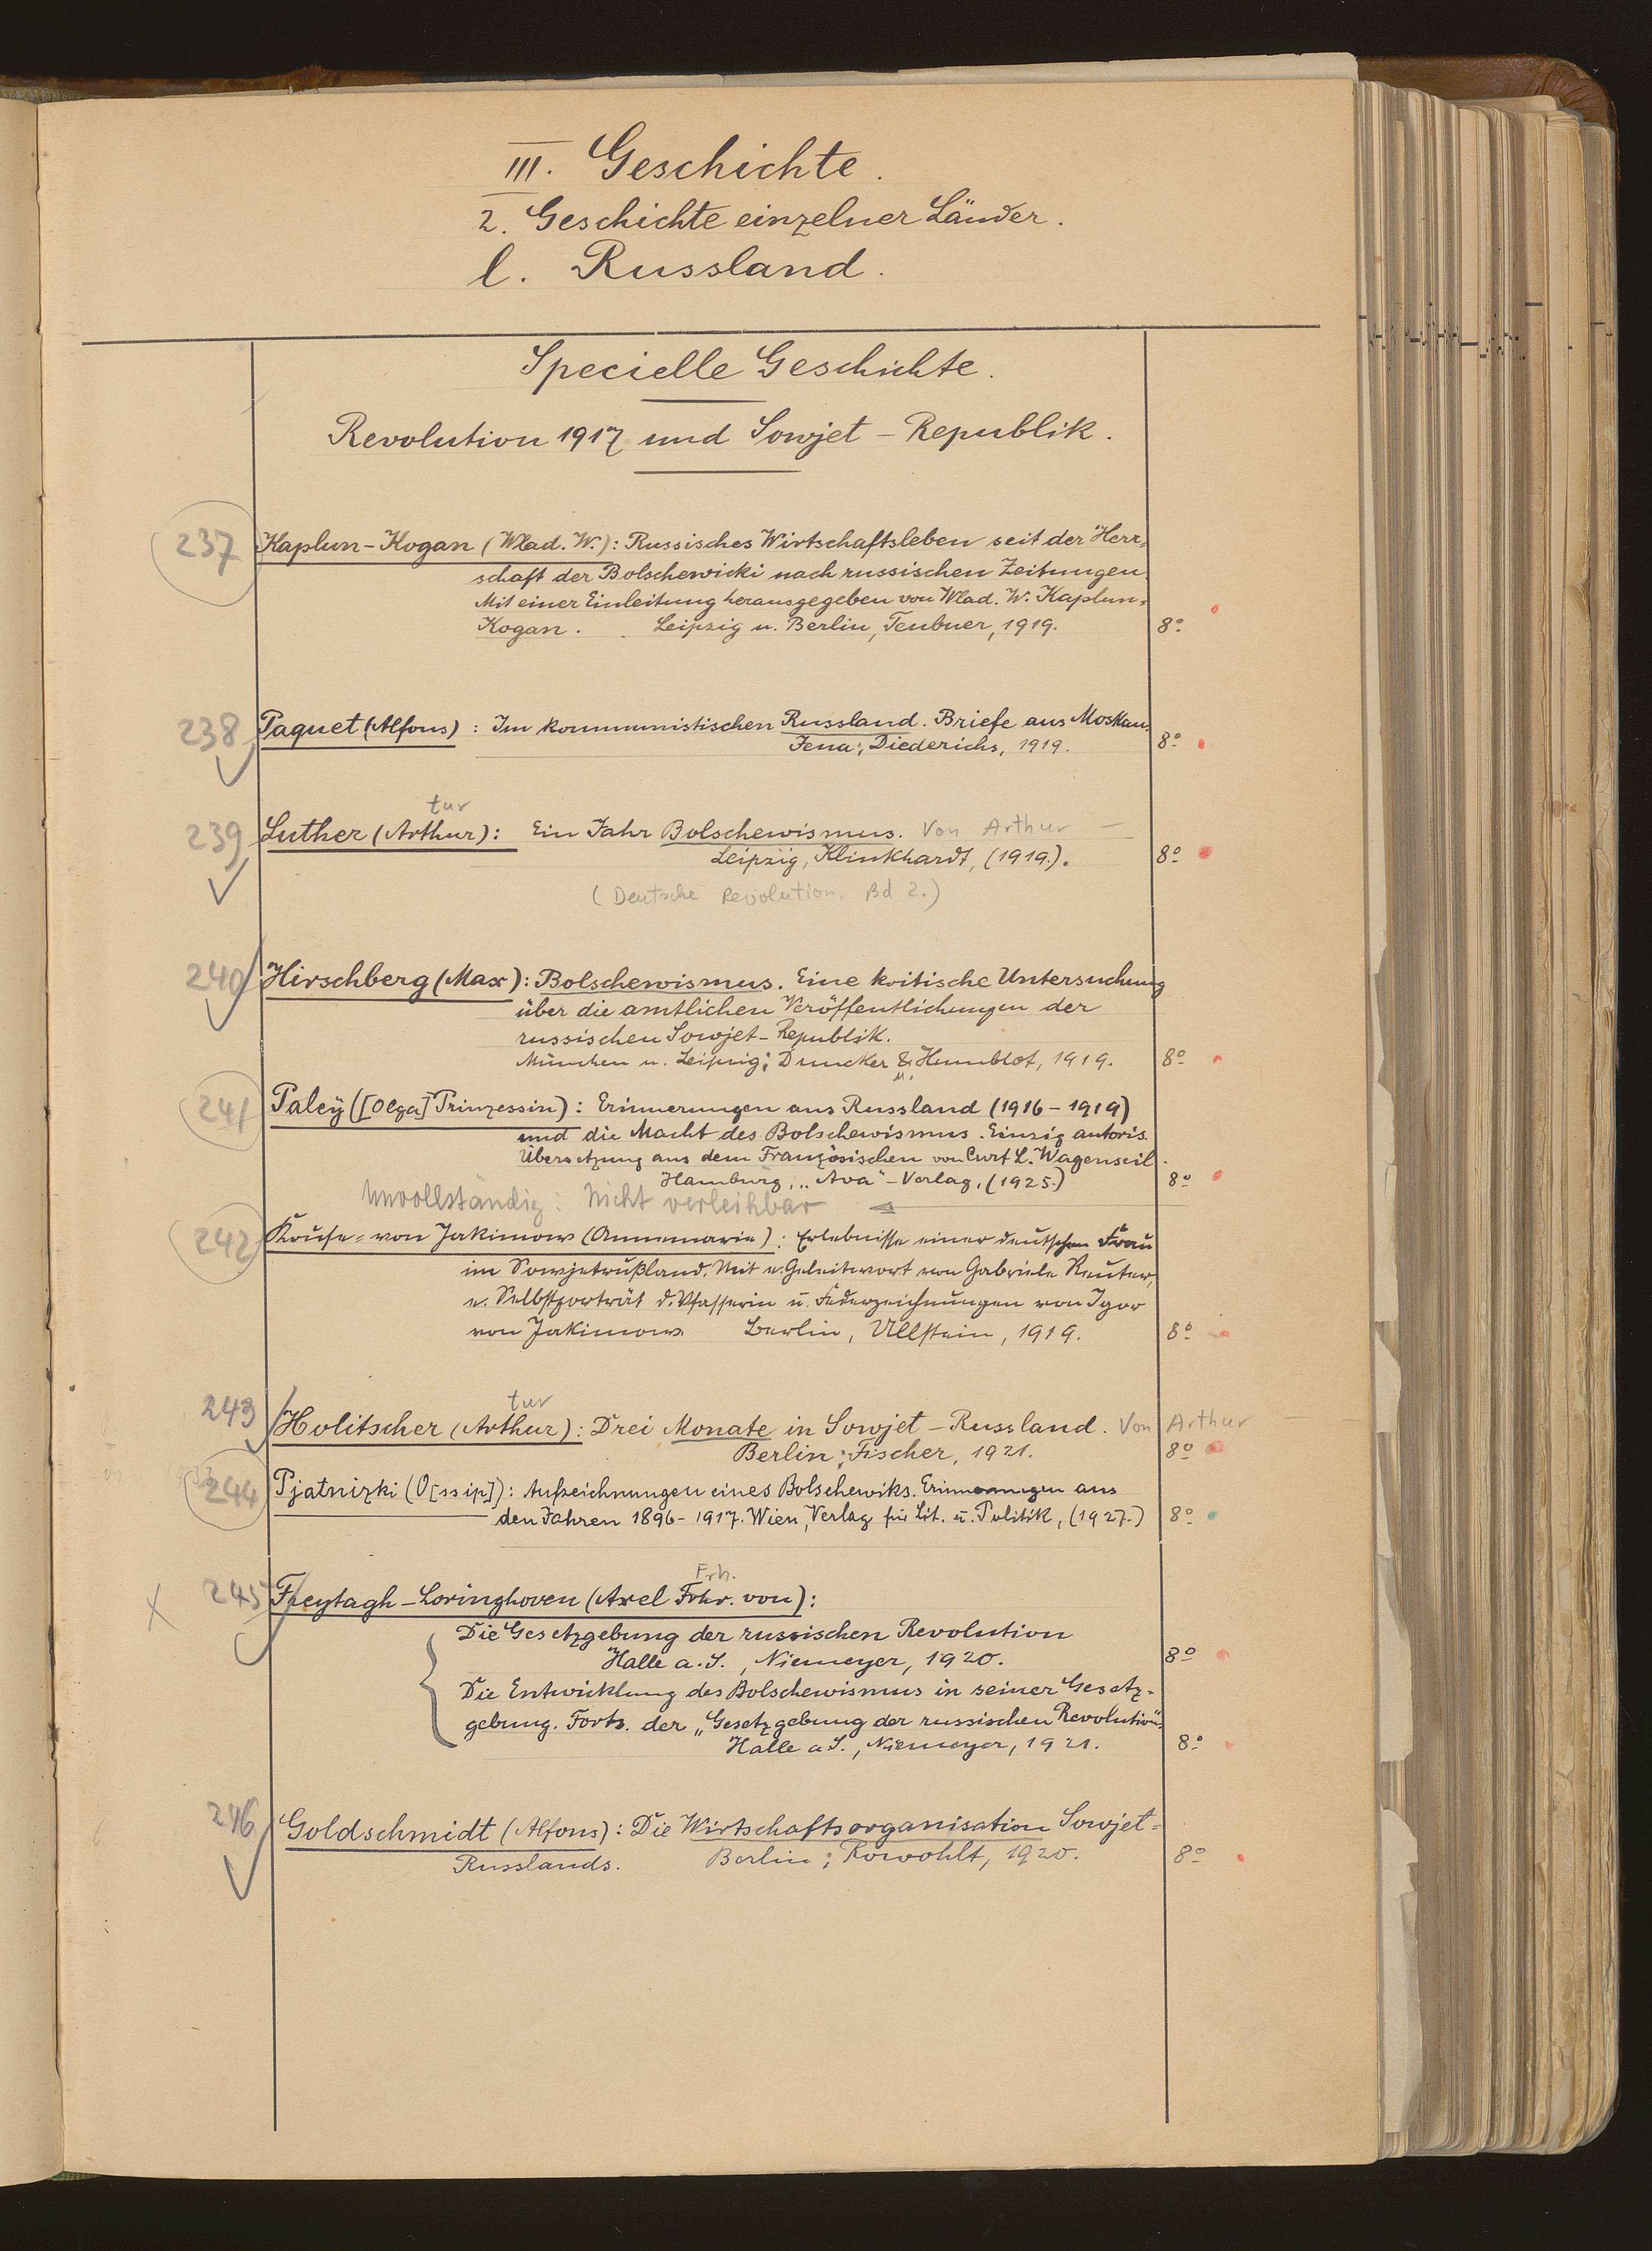 III. Geschichte.
2. Geschichte einzelner Länder.
l. Russland.
Specielle Geschichte.
Revolution 1917 und Sowjet-Republik.
237 Kaplun-Kogan (Wlad. W.): Russisches Wirtschaftsleben seit der Herr=
schaft der Bolschewicki nach russischen Zeitungen.
Mit einer Einleitung herausgegeben von Wlad. W. Kaplun=
Kogan. Leipzig u. Berlin, Teubner, 1919. 8°
238 Paquet (Alfons): Im kommunistischen Russland. Briefe aus Moskau.
Jena; Diederichs, 1919. 8°
tur
239 Luther (Arthur): Ein Jahr Bolschewismus. Von Arthur –
Leipzig, Klinkhardt, (1919.). 8°
(Deutsche Revolution. Bd 2.)
240 Hirschberg (Max): Bolschewismus. Eine kritische Untersuchung
über die amtlichen Veröffentlichungen der
russischen Sowjet-Republik.
München u. Leipzig; Duncker & Humblot, 1919. 8°
u.
241 Paley ([Olga] Prinzessin): Erinnerungen aus Russland (1916-1919)
und die Macht des Bolschewismus. Einzig autoris.
Übersetzung aus dem Französischen von Curt L. Wagenseil.
Hamburg, "Ava"-Verlag, (1925.) 8°
Unvollständig: Nicht verleihbar
242 Kruse=von Jakimow (Annemarie): Erlebnisse einer deutschen Frau
im Sowjetrußland. Mit e. Geleitwort von Gabriele Reuter,
e. Selbstporträt d. Vfasserin u. Federzeichnungen von Igor
von Jakimow. Berlin, Ullstein, 1919. 8°
tur
243 Holitscher (Arthur): Drei Monate in Sowjet-Russland. Von Arthur –
Berlin; Fischer, 1921. 8°
244 Pjatnizki (O[ssip]): Aufzeichnungen eines Bolschewiks. Erinnerungen aus
den Jahren 1896-1917. Wien, Verlag für Lit. u. Politik, (1927.) 8°
Frh.
245 Freytagh-Loringhoven (Axel Frhr. von):
Die Gesetzgebung der russischen Revolution
Halle a. S., Niemeyer, 1920. 8°
Die Entwicklung des Bolschewismus in seiner Gesetz-
gebung. Forts. der "Gesetzgebung der russischen Revolution".
Halle a S., Niemeyer, 1921. 8°
246 Goldschmidt (Alfons): Die Wirtschaftsorganisation Sowjet=
Russlands. Berlin; Rowohlt, 1920. 8°